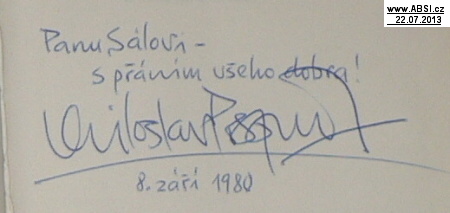 www.ABSI.cz
22.07.2013
Panu Sálovi –
s přáním všeho dobra!
Miloslav
8. září 1980